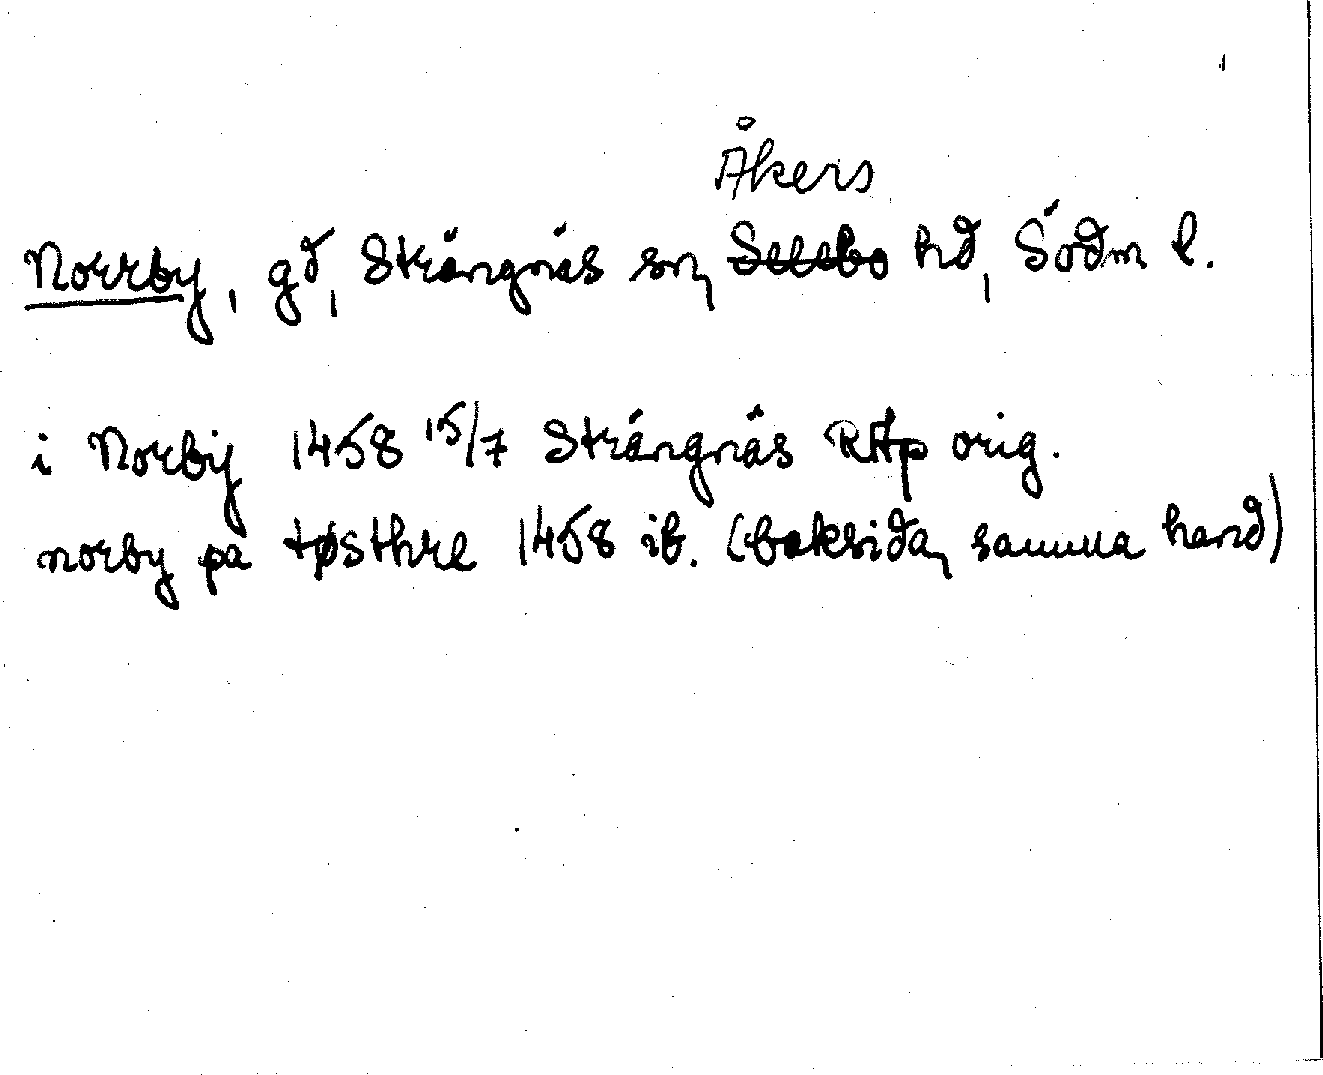 Åkers
Norrby, gd, Strängnäs sn, Selebo hd, Södm l.
i Norby 1458 15/7 Strängnäs RAp orig.
norby pa tøsthre 1458 ib. (baksidan, samma hand)